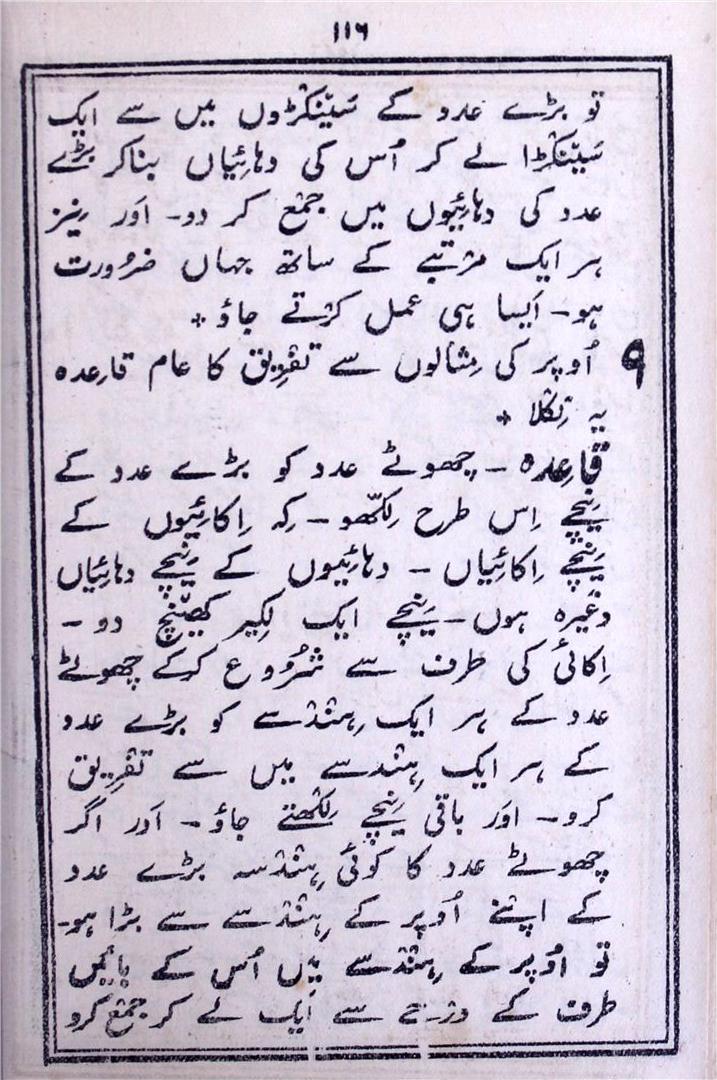 ۱۱۶
تو بڑے عدد کے سَینکڑوں میں سے ایک
سَینکڑا لے کر اُس کی دہائِیاں بناکر بڑے
عدد کی دہائِیوں میں جمْع کر دو۔ اَور نِیز
ہر ایک مرْتبے کے ساتھ جہاں ضرُورت
ہو۔ اَیسا ہی عمل کرْتے جاؤ ٭
۹ اُوپر کی مِثالوں سے تفْرِیق کا عام قاعِدہ
یہ نِکلا ٭
قاعِدہ ۔ چھوٹے عدد کو بڑے عدد کے
نِیچے اِس طرح لِکّھو ۔ کہ اِکائِیوں کے
نِیچے اِکائِیاں ۔ دہائِیوں کے نِیچے دہائِیاں
وغیرہ ہوں ۔ نِیچے ایک لکِیر کھینچ دو ۔
اِکائی کی طرف سے شرُوع کرکے چھوٹے
عدد کے ہر ایک ہِنْدْسے کو بڑے عدد
کے ہر ایک ہِنْدسے میں سے تفْرِیق
کرو ۔ اَور باقی نِیچے لِکھْتے جاؤ ۔ اَور اگر
چھوٹے عدد کا کوئی ہِنْدْسہ بڑے عدد
کے اپنے اُوپر کے ہِنْدْسے سے بڑا ہو۔
تو اُوپر کے ہِنْدْسے میں اُس کے بائیں
طرف کے درْجے سے ایک لے کر جمْع کرو